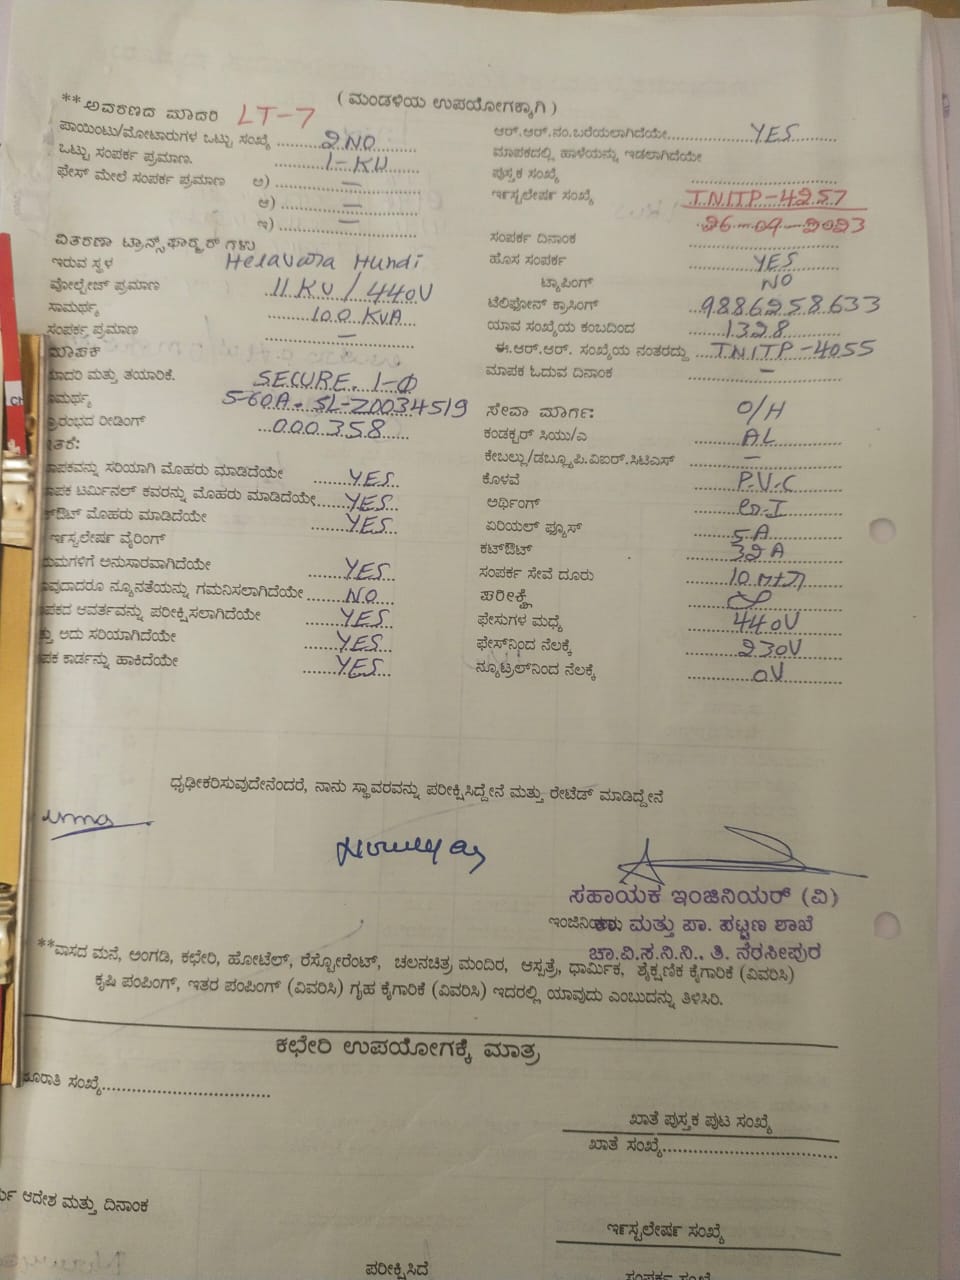 ( ಮಂಡಳಿಯ ಉಪಯೋಗಕ್ಕಾಗಿ )
**ಆವರಣದ ಮಾದರಿ LT-7
ಪಾಯಿಂಟು/ಮೋಟಾರುಗಳ ಒಟ್ಟು ಸಂಖ್ಯೆ 2NO
ಒಟ್ಟು ಸಂಪರ್ಕ ಪ್ರಮಾಣ. 1-KW
ಫೇಸ್ ಮೇಲೆ ಸಂಪರ್ಕ ಪ್ರಮಾಣ ಅ) —
ಆ) —
ಇ) —
ವಿತರಣಾ ಟ್ರಾನ್ಸ್‌ಫಾರ್ಮರ್‌ಗಳು
ಇರುವ ಸ್ಥಳ Hundi
ವೋಲ್ಟೇಜ್ ಪ್ರಮಾಣ 11 KV / 440V
ಸಾಮರ್ಥ್ಯ 100 KVA
ಸಂಪರ್ಕ ಪ್ರಮಾಣ —
ಮಾಪಕ
ಮಾದರಿ ಮತ್ತು ತಯಾರಿಕೆ. SECURE. 1-Φ
ಸಾಮರ್ಥ್ಯ 5-60A- SL-Z0034519
ಪ್ರಾರಂಭದ ರೀಡಿಂಗ್ 000358
ಮಾಪಕವನ್ನು ಸರಿಯಾಗಿ ಮೊಹರು ಮಾಡಿದೆಯೇ YES
ಮಾಪಕ ಟರ್ಮಿನಲ್ ಕವರನ್ನು ಮೊಹರು ಮಾಡಿದೆಯೇ YES
ಕಟ್‌ಔಟ್ ಮೊಹರು ಮಾಡಿದೆಯೇ YES
ಇನ್ಸ್ಟಲೇಷನ್ ವೈರಿಂಗ್
ನಿಯಮಗಳಿಗೆ ಅನುಸಾರವಾಗಿದೆಯೇ YES
ಯಾವುದಾದರೂ ನ್ಯೂನತೆಯನ್ನು ಗಮನಿಸಲಾಗಿದೆಯೇ NO
ಮಾಪಕದ ಆವರ್ತವನ್ನು ಪರೀಕ್ಷಿಸಲಾಗಿದೆಯೇ YES
ಮತ್ತು ಅದು ಸರಿಯಾಗಿದೆಯೇ YES
ಮಾಪಕ ಕಾರ್ಡನ್ನು ಹಾಕಿದೆಯೇ YES
ಆರ್.ಆರ್.ನಂ.ಬರೆಯಲಾಗಿದೆಯೇ YES
ಮಾಪಕದಲ್ಲಿ ಹಾಳೆಯನ್ನು ಇಡಲಾಗಿದೆಯೇ
ಪುಸ್ತಕ ಸಂಖ್ಯೆ
ಇನ್ಸ್ಟಲೇಷನ್ ಸಂಖ್ಯೆ TNITP-4257
26-09-2023
ಸಂಪರ್ಕ ದಿನಾಂಕ
ಹೊಸ ಸಂಪರ್ಕ YES
ಟ್ಯಾಪಿಂಗ್ NO
ಟೆಲಿಫೋನ್ ಕ್ರಾಸಿಂಗ್ 9886258633
ಯಾವ ಸಂಖ್ಯೆಯ ಕಂಬದಿಂದ 1328
ಈ.ಆರ್.ಆರ್. ಸಂಖ್ಯೆಯ ನಂತರದ್ದು TNITP-4055
ಮಾಪಕ ಓದುವ ದಿನಾಂಕ —
ಸೇವಾ ಮಾರ್ಗ: O/H
ಕಂಡಕ್ಟರ್ ಸಿಯು/ಎ AL
ಕೇಬಲ್ಲು/ಡಬ್ಲ್ಯೂ.ಪಿ.ವಿಐರ್.ಸಿಟಿಎಸ್ —
ಕೊಳವೆ P.V.C
ಅರ್ಥಿಂಗ್
ಏರಿಯಲ್ ಫ್ಯೂಸ್ 5A
ಕಟ್‌ಔಟ್ 32A
ಸಂಪರ್ಕ ಸೇವೆ ದೂರು 10
ಪರೀಕ್ಷೆ
ಫೇಸುಗಳ ಮಧ್ಯೆ 440V
ಫೇಸ್‌ನಿಂದ ನೆಲಕ್ಕೆ 230V
ನ್ಯೂಟ್ರಲ್‌ನಿಂದ ನೆಲಕ್ಕೆ 0V
ಧೃಢೀಕರಿಸುವುದೇನೆಂದರೆ, ನಾನು ಸ್ಥಾವರವನ್ನು ಪರೀಕ್ಷಿಸಿದ್ದೇನೆ ಮತ್ತು ರೇಟೆಡ್ ಮಾಡಿದ್ದೇನೆ
ಸಹಾಯಕ ಇಂಜಿನಿಯರ್ (ವಿ)
ಮತ್ತು ಪಾ. ಪಟ್ಟಣ ಶಾಖೆ
ಚಾ.ವಿ.ಸ.ನಿ.ನಿ., ತಿ. ನರಸೀಪುರ
**ವಾಸದ ಮನೆ, ಅಂಗಡಿ, ಕಛೇರಿ, ಹೋಟೆಲ್, ರೆಸ್ಟೋರೆಂಟ್, ಚಲನಚಿತ್ರ ಮಂದಿರ, ಆಸ್ಪತ್ರೆ, ಧಾರ್ಮಿಕ, ಶೈಕ್ಷಣಿಕ ಕೈಗಾರಿಕೆ (ವಿವರಿಸಿ)
ಕೃಷಿ ಪಂಪಿಂಗ್, ಇತರ ಪಂಪಿಂಗ್ (ವಿವರಿಸಿ) ಗೃಹ ಕೈಗಾರಿಕೆ (ವಿವರಿಸಿ) ಇದರಲ್ಲಿ ಯಾವುದು ಎಂಬುದನ್ನು ತಿಳಿಸಿರಿ.
ಕಛೇರಿ ಉಪಯೋಗಕ್ಕೆ ಮಾತ್ರ
ಸಂಖ್ಯೆ
ಖಾತೆ ಪುಸ್ತಕ ಪುಟ ಸಂಖ್ಯೆ
ಖಾತೆ ಸಂಖ್ಯೆ
ಆದೇಶ ಮತ್ತು ದಿನಾಂಕ
ಇನ್ಸ್ಟಲೇಷನ್ ಸಂಖ್ಯೆ
ಪರೀಕ್ಷಿಸಿದೆ